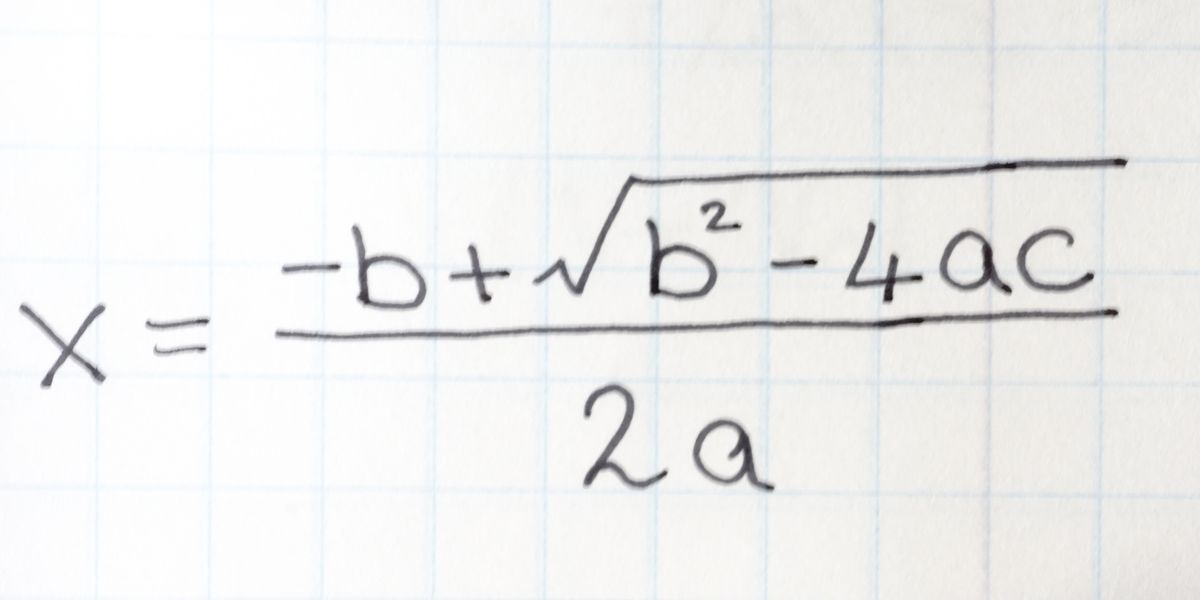 x = (-b + √(b² - 4ac)) / 2a